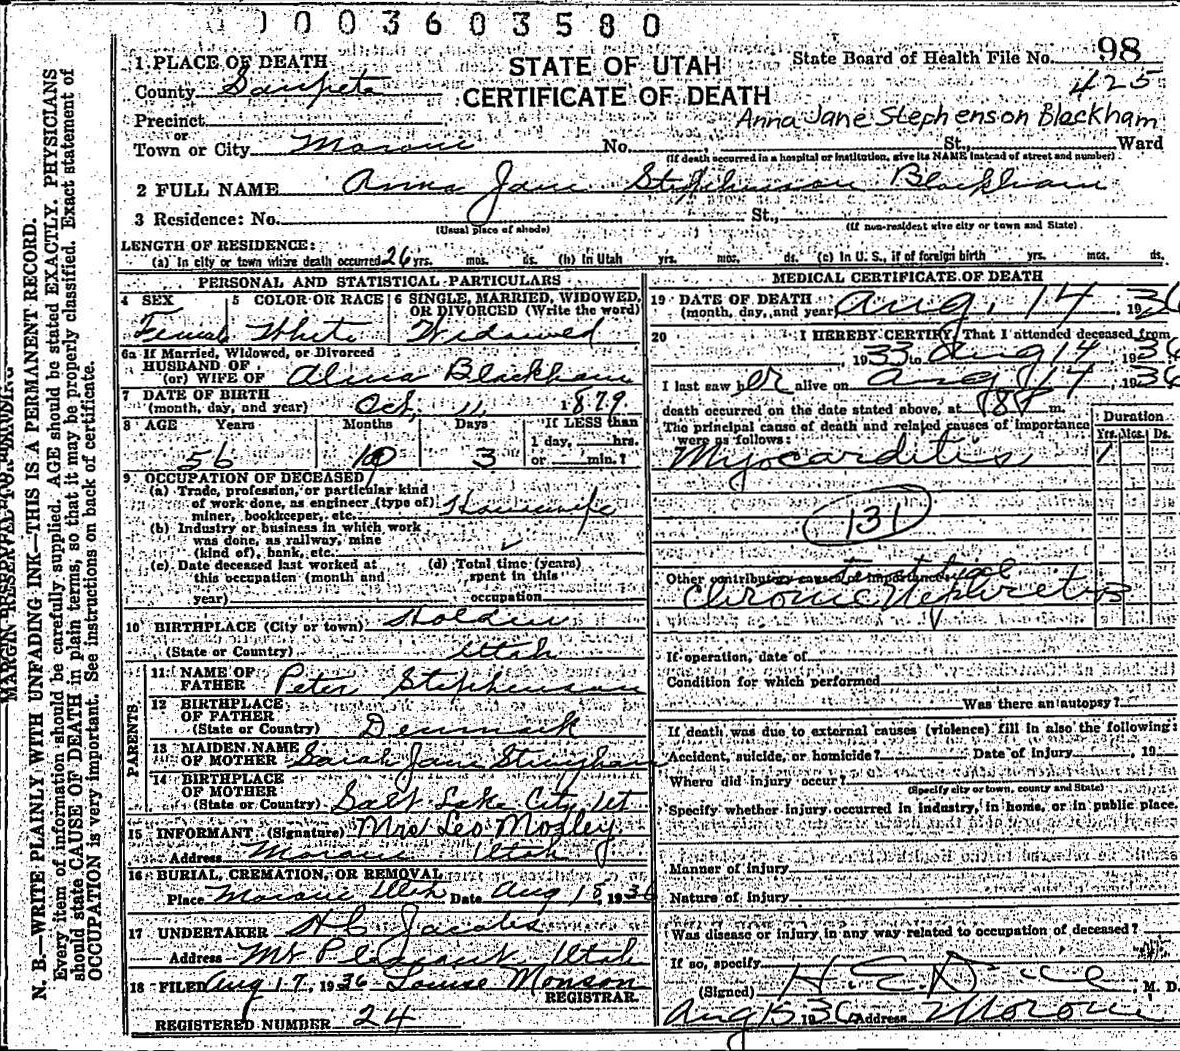 0 0 0 3 6 0 3 5 8 0
1 PLACE OF DEATH
STATE OF UTAH
State Board of Health File No. 98
County Sanpete
CERTIFICATE OF DEATH
425
Precinct
Anna Jane Stephenson Blackham
or
Town or City Moroni No. St., Ward
(If death occurred in a hospital or institution, give its NAME instead of street and number)
2 FULL NAME Anna Jane Stephenson Blackham
3 Residence: No. St.,
(Usual place of abode) (If non-resident give city or town and State)
LENGTH OF RESIDENCE:
(a) In city or town where death occurred 26 yrs. mos. ds. (b) In Utah yrs. mos. ds. (c) In U. S., if of foreign birth yrs. mos. ds.
PERSONAL AND STATISTICAL PARTICULARS
4 SEX 5 COLOR OR RACE 6 SINGLE, MARRIED, WIDOWED,
OR DIVORCED (Write the word)
Female White Widowed
6a If Married, Widowed, or Divorced
HUSBAND OF
(or) WIFE OF Alma Blackham
7 DATE OF BIRTH
(month, day, and year) Oct. 11 1879
8 AGE Years Months Days If LESS than
1 day, hrs.
56 10 3 or min.?
9 OCCUPATION OF DECEASED
(a) Trade, profession, or particular kind
of work done, as engineer (type of)
miner, bookkeeper, etc. Housewife
(b) Industry or business in which work
was done, as railway, mine
(kind of), bank, etc.
(c) Date deceased last worked at
this occupation (month and
year)
(d) Total time (years)
spent in this
occupation
10 BIRTHPLACE (City or town) Holden
(State or Country) Utah
PARENTS
11 NAME OF
FATHER Peter Stephenson
12 BIRTHPLACE
OF FATHER
(State or Country) Denmark
13 MAIDEN NAME
OF MOTHER Sarah Jane Stringham
14 BIRTHPLACE
OF MOTHER
(State or Country) Salt Lake City Ut
15 INFORMANT (Signature) Mrs Leo Mosley
Address Moroni Utah
16 BURIAL, CREMATION, OR REMOVAL
Place Moroni Utah Date Aug 15, 1936
17 UNDERTAKER H C Jacobs
Address Mt Pleasant Utah
18 FILED Aug 17, 1936 Louise Monson
REGISTRAR.
REGISTERED NUMBER 24
MEDICAL CERTIFICATE OF DEATH
19 DATE OF DEATH
(month, day, and year) Aug. 14, 1936
20 I HEREBY CERTIFY, That I attended deceased from
1933 to Aug 14 1936
I last saw her alive on Aug 14, 1936
death occurred on the date stated above, at m.
The principal cause of death and related causes of importance
were as follows:
Duration
Yrs. Mos. Ds.
Myocarditis 1
131
Other contributory causes of importance:
Chronic Nephritis 3
If operation, date of
Condition for which performed
Was there an autopsy?
If death was due to external causes (violence) fill in also the following:
Accident, suicide, or homicide? Date of injury 19
Where did injury occur?
(Specify city or town, county and State)
Specify whether injury occurred in industry, in home, or in public place.
Manner of injury
Nature of injury
Was disease or injury in any way related to occupation of deceased?
If so, specify
(Signed) H. E. M. D.
Aug 15 1936 Address Moroni
N. B.—WRITE PLAINLY WITH UNFADING INK—THIS IS A PERMANENT RECORD.
Every item of information should be carefully supplied. AGE should be stated EXACTLY. PHYSICIANS
should state CAUSE OF DEATH in plain terms, so that it may be properly classified. Exact statement of
OCCUPATION is very important. See instructions on back of certificate.